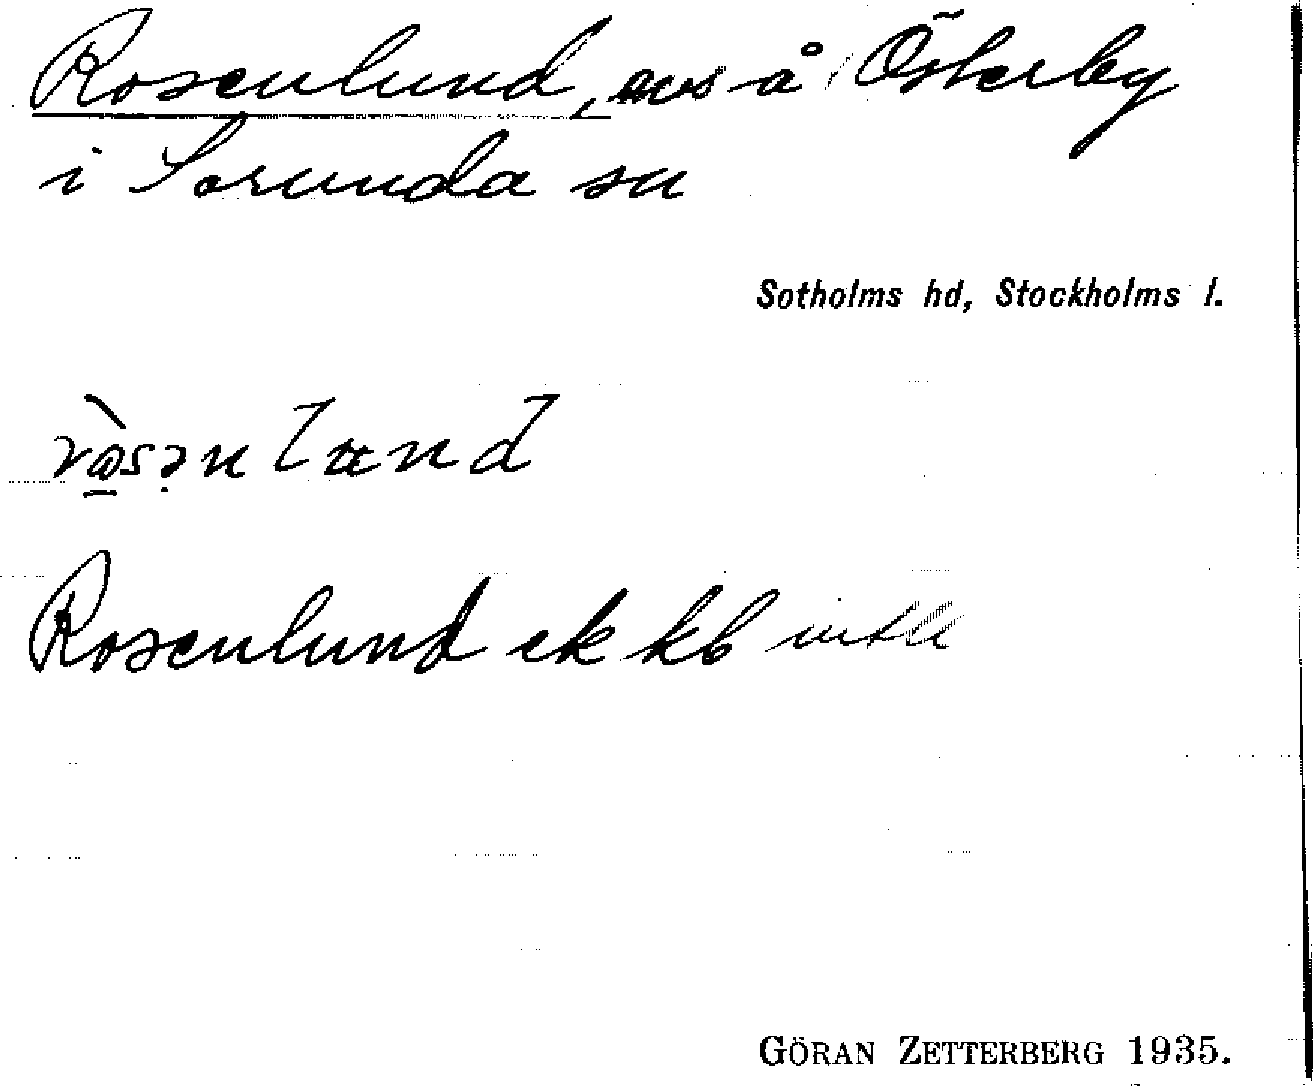 Rosenlund, avs å Österby
i Sorunda sn
Sotholms hd, Stockholms l.
Rosenlund ek kb
GÖRAN ZETTERBERG 1935.